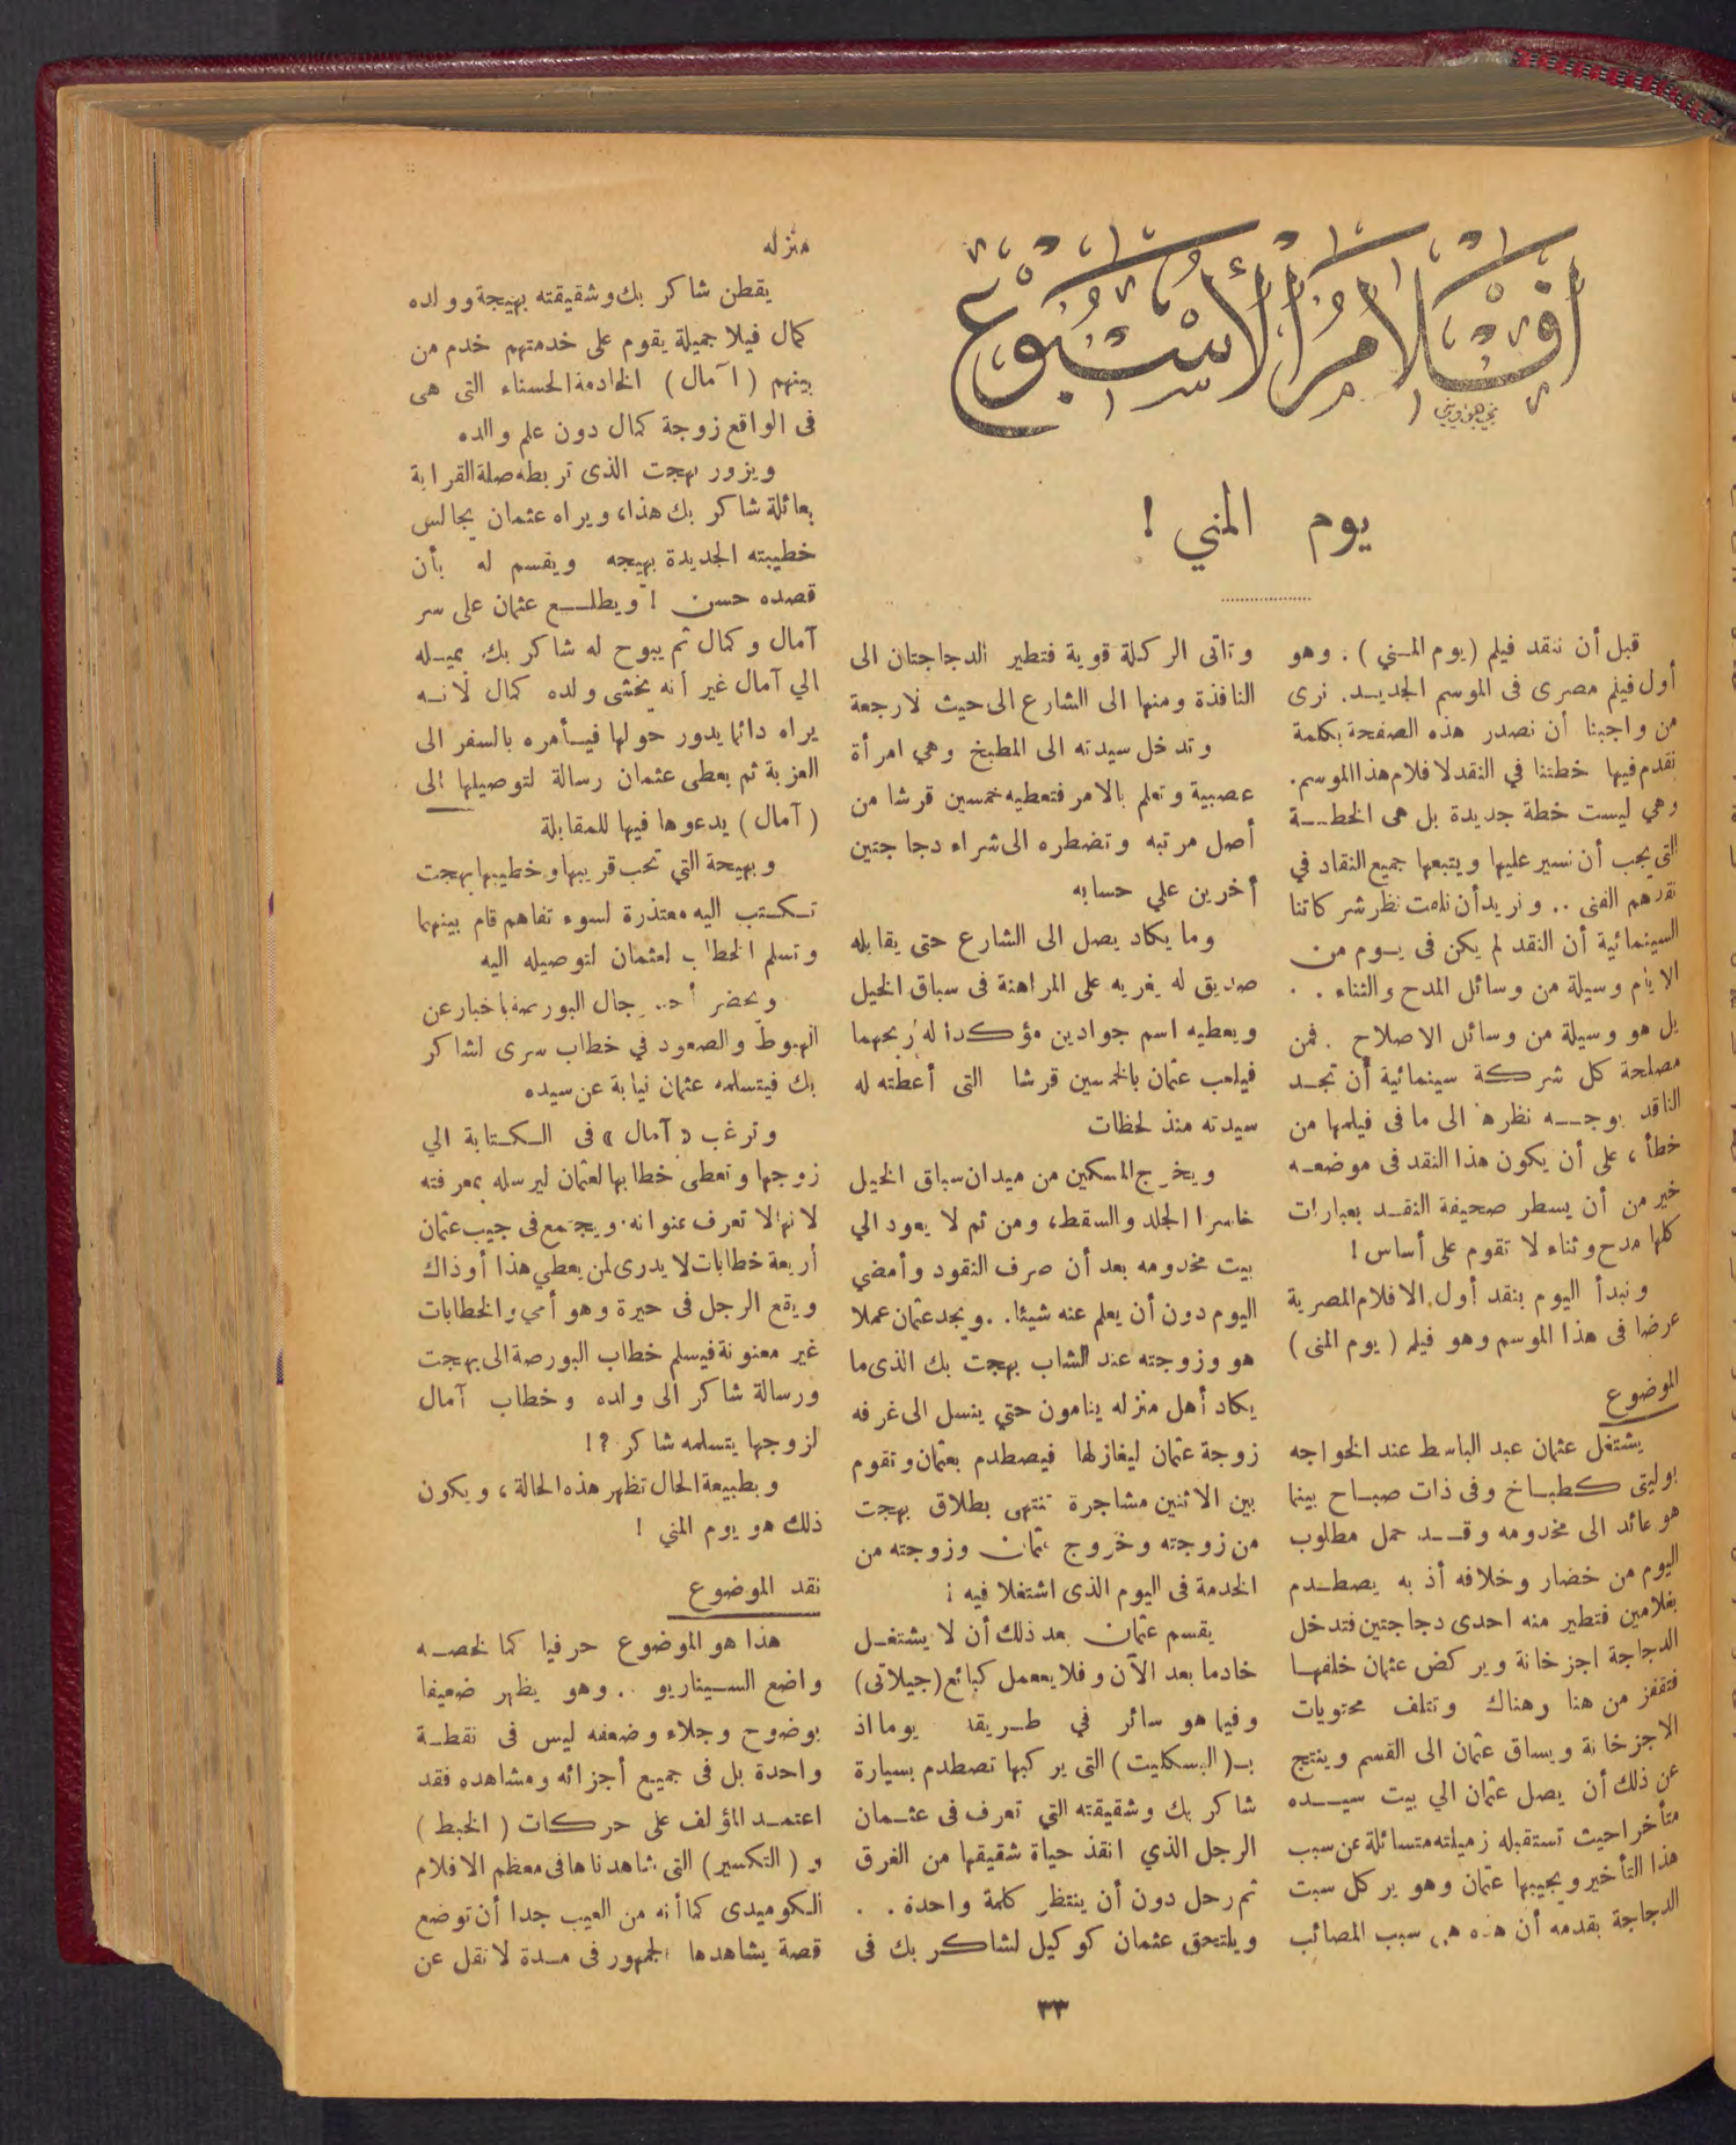 أفلام الأسبوع
يوم المني !
قبل أن ننقد فيلم (يوم المـني) . وهو
أول فيلم مصرى فى الموسم الجديـد. نرى
من واجبنا أن نصدر هذه الصفحة بكلمة
نقدم فيها خطتنا في النقد لافلام هذا الموسم.
وهي ليست خطة جديدة بل هى الخطـــة
التى يجب أن نسير عليها ويتبعها جميع النقاد في
نقدهم الفنى .. ونريد أن نلفت نظر شركاتنا
السينمائية أن النقد لم يكن فى يـوم من
الايام وسيلة من وسائل المدح والثناء . .
بل هو وسيلة من وسائل الاصلاح . فمن
مصلحة كل شركة سينمائية أن تجـد
الناقد يوجـــه نظرها الى ما فى فيلمها من
خطأ ، على أن يكون هذا النقد فى موضعـه
خير من أن يسطر صحيفة النقـد بعبارات
كلها مدح وثناء لا تقوم على أساس !
ونبدأ اليوم بنقد أول الافلام المصرية
عرضا فى هذا الموسم وهو فيلم ( يوم المنى )
الموضوع
يشتغل عثمان عبد الباسط عند الخواجه
بوليتى كطبـاخ وفى ذات صبـاح بينما
هو عائد الى مخدومه وقــد حمل مطلوب
اليوم من خضار وخلافه أذ به يصطـدم
بغلامين فتطير منه احدى دجاجتين فتدخل
الدجاجة اجزخانة ويركض عثمان خلفهـا
فتقفز من هنا وهناك وتتلف محتويات
الاجزخانة ويساق عثمان الى القسم وينتج
عن ذلك أن يصل عثمان الي بيت سيـــده
متأخرا حيث تستقبله زميلته متسائلة عن سبب
هذا التأخير ويجيبها عثمان وهو يركل سبت
الدجاجة بقدمه أن هذه هى سبب المصائب
وتاتى الركلة قوية فتطير الدجاجتان الى
النافذة ومنها الى الشارع الى حيث لارجعة
وتدخل سيدته الى المطبخ وهي امرأة
عصبية وتعلم بالامر فتعطيه خمسين قرشا من
أصل مرتبه وتضطره الى شراء دجاجتين
أخرين علي حسابه
وما يكاد يصل الى الشارع حتى يقابله
صديق له يغريه على المراهنة فى سباق الخيل
ويعطيه اسم جوادين مؤكدا له ربحهما
فيلعب عثمان بالخمسين قرشا التى أعطته له
سيدته منذ لحظات
ويخرج المسكين من ميدان سباق الخيل
خاسرا الجلد والسقط، ومن ثم لا يعود الي
بيت مخدومه بعد أن صرف النقود وأمضي
اليوم دون أن يعلم عنه شيئا. . ويجد عثمان عملا
هو وزوجته عند الشاب بهجت بك الذى ما
يكاد أهل منزله ينامون حتي ينسل الى غرفه
زوجة عثمان ليغازلها فيصطدم بعثمان وتقوم
بين الاثنين مشاجرة تنتهى بطلاق بهجت
من زوجته وخروج عثمان وزوجته من
الخدمة فى اليوم الذى اشتغلا فيه ؛
يقسم عثمان بعد ذلك أن لا يشتغـل
خادما بعد الآن وفلا يعمل كبائع (جيلاتى)
وفيما هو سائر في طـريقه يوما اذ
بـ( البسكليت ) التى يركبها تصطدم بسيارة
شاكر بك وشقيقته التي تعرف فى عثـمان
الرجل الذي انقذ حياة شقيقها من الغرق
ثم رحل دون أن ينتظر كلمة واحدة . .
ويلتحق عثمان كوكيل لشاكر بك فى
منزله
يقطن شاكر بك وشقيقته بهيجة وولده
كمال فيلا جميلة يقوم على خدمتهم خدم من
بينهم ( آمال ) الخادمة الحسناء التى هى
فى الواقع زوجة كمال دون علم والده
ويزور بهجت الذى تربطه صلة القرابة
بعائلة شاكر بك هذا، ويراه عثمان يجالس
خطيبته الجديدة بهيجه ويقسم له بأن
قصده حسن ! ويطلـــع عثمان على سر
آمال وكمال ثم يبوح له شاكر بك. بميـله
الي آمال غير أنه يخشى ولده كمال لأنـه
يراه دائما يدور حولها فيـأمره بالسفر الى
العزبة ثم يعطى عثمان رسالة لتوصيلها الى
( آمال ) يدعوها فيها للمقابلة
وبهيحة التي تحب قريبها وخطيبها بهجت
تـكـتب اليه معتذرة لسوء تفاهم قام بينهما
وتسلم الخطاب لعثمان لتوصيله اليه
ويحضر أحد رجال البورصة باخبار عن
الهبوط والصعود في خطاب سرى لشاكر
بك فيتسلمه عثمان نيابة عن سيده
وترغب « آمال » فى الـكـتابة الي
زوجها وتعطى خطابها لعثمان ليرسله بمعرفته
لانها لا تعرف عنوانه. ويجتمع فى جيب عثمان
أربعة خطابات لا يدرى لمن يعطي هذا أو ذاك
ويقع الرجل فى حيرة وهو أمي والخطابات
غير معنونة فيسلم خطاب البورصة الى بهجت
ورسالة شاكر الى ولده وخطاب آمال
لزوجها يتسلمه شاكر ؟!
وبطبيعة الحال تظهر هذه الحالة ، ويكون
ذلك هو يوم المني !
نقد الموضوع
هذا هو الموضوع حرفيا كما لخصـه
واضع السـيناريو .. وهو يظهر ضعيفا
بوضوح وجلاء وضعفه ليس فى نقطـة
واحدة بل فى جميع أجزائه ومشاهده فقد
اعتمـد المؤلف على حركات ( الخبط )
و ( التكسير ) التى شاهدناها فى معظم الافلام
الـكوميدى كما أنه من العيب جدا أن توضع
قصة يشاهدها الجمهور فى مـدة لا تقل عن
٣٣